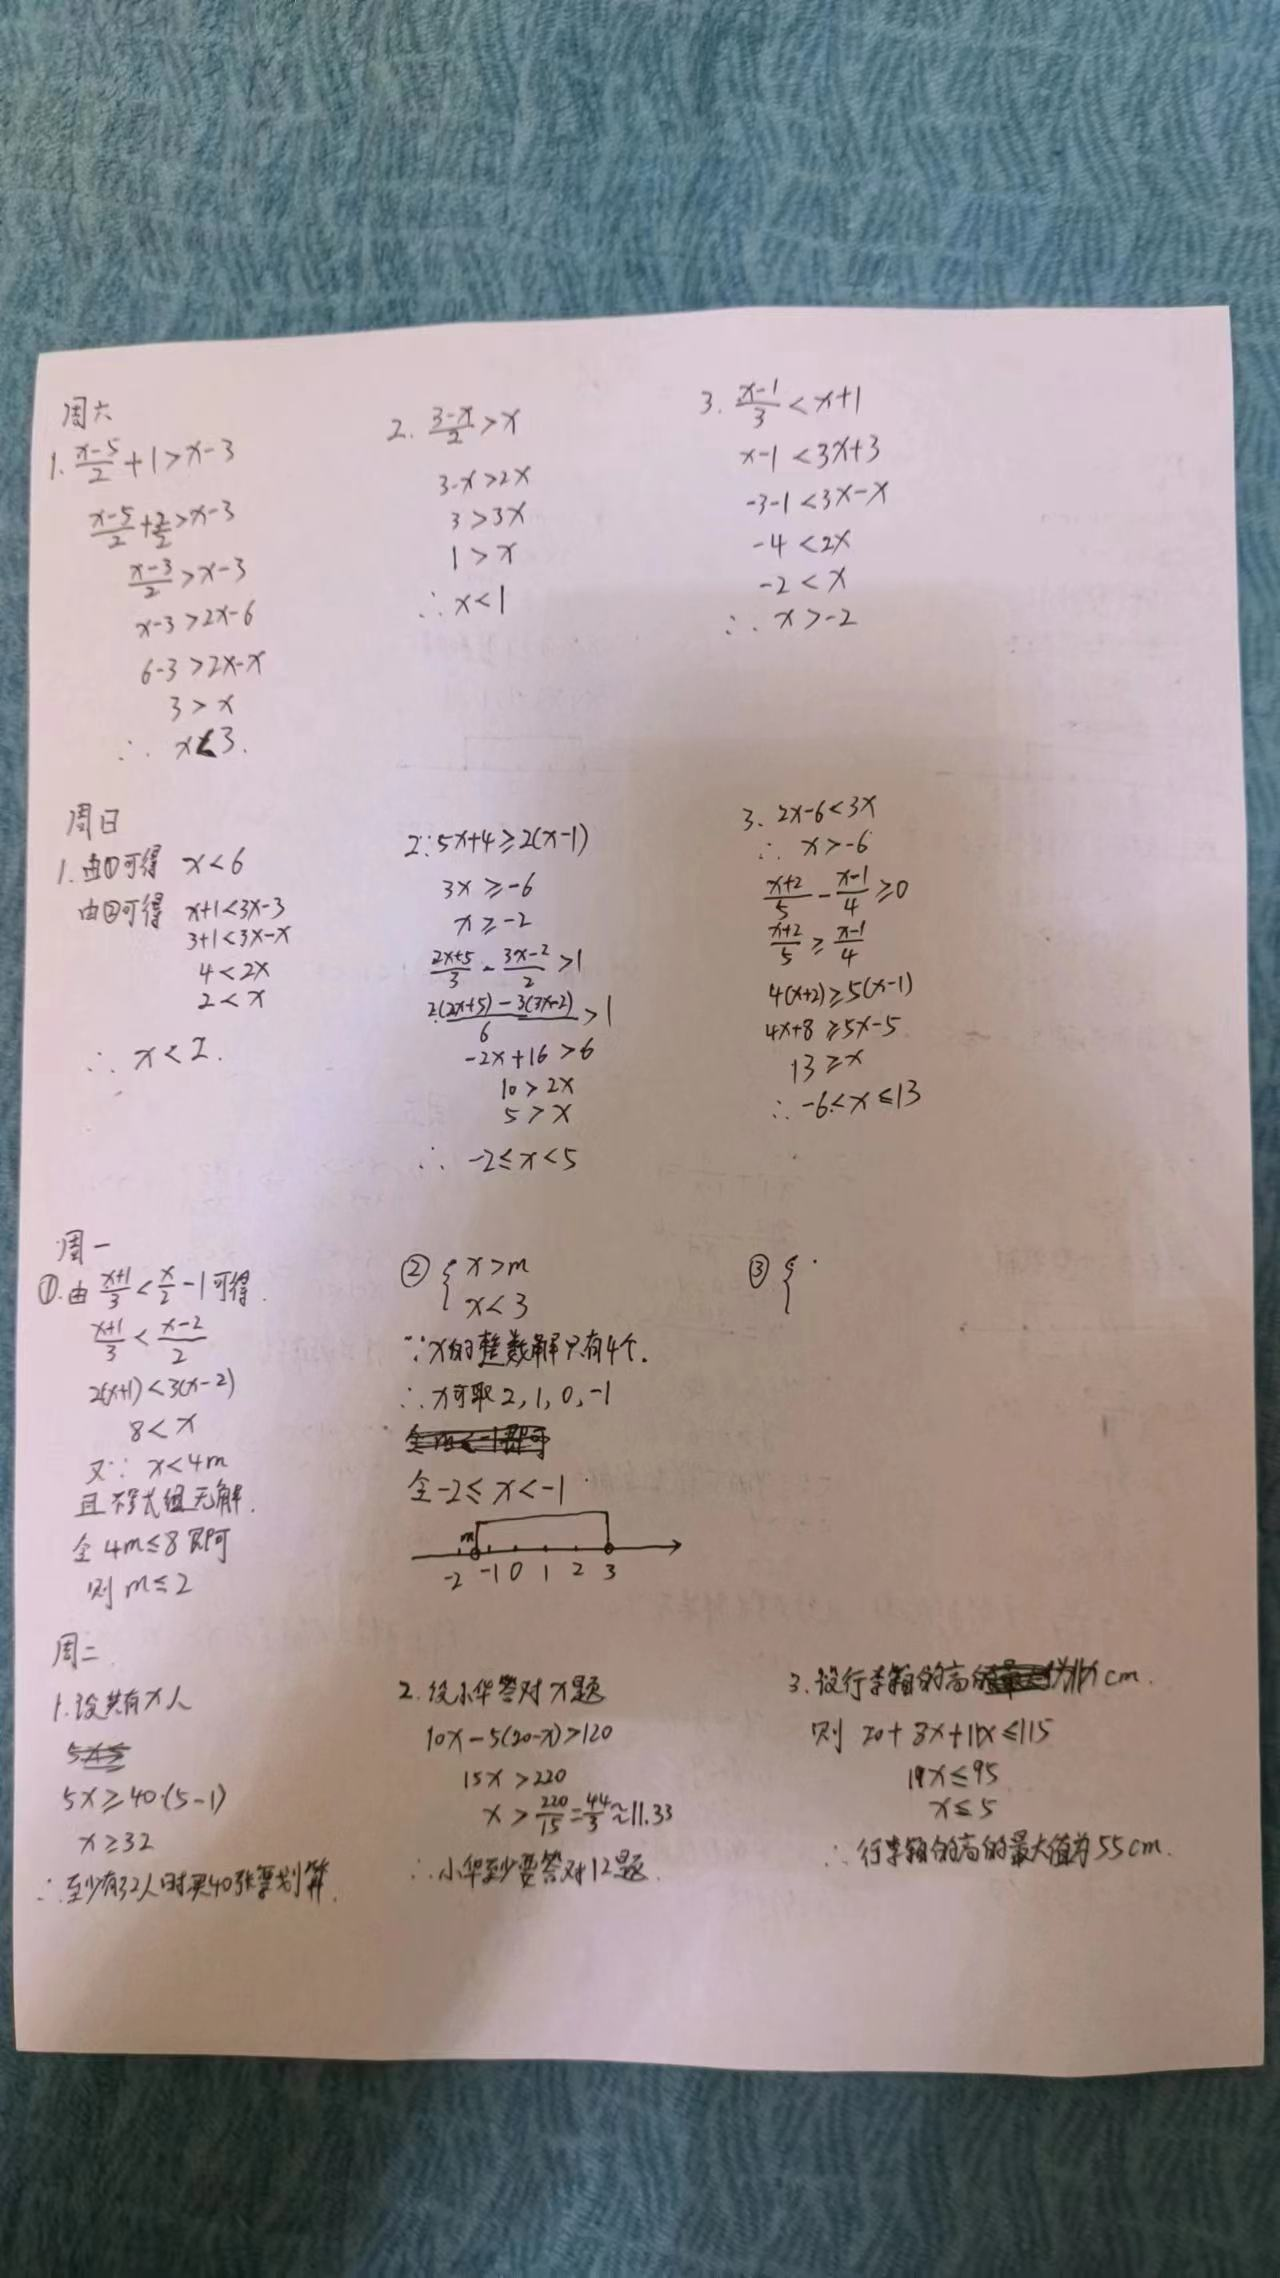 周六
1. (x-5)/2 + 1 > x-3
(x-5)/2 + 2/2 > x-3
(x-3)/2 > x-3
x-3 > 2x-6
6-3 > 2x-x
3 > x
∴ x<3.
2. (3-x)/2 > x
3-x > 2x
3 > 3x
1 > x
∴ x<1
3. (x-1)/3 < x+1
x-1 < 3x+3
-3-1 < 3x-x
-4 < 2x
-2 < x
∴ x > -2
周日
1. 由①可得 x<6
由②可得 x+1<3x-3
3+1<3x-x
4<2x
2<x
∴ x<2.
2. 5x+4≥2(x-1)
3x≥-6
x≥-2
(2x+5)/3 - (3x-2)/2 >1
(2(2x+5)-3(3x-2))/6 >1
-2x+16>6
10>2x
5>x
∴ -2≤x<5
3. 2x-6<3x
∴ x>-6
(x+2)/5 - (x-1)/4 ≥0
(x+2)/5 ≥ (x-1)/4
4(x+2)≥5(x-1)
4x+8≥5x-5
13≥x
∴ -6<x≤13
周一
①.由 (x+1)/3 < x/2 -1可得.
(x+1)/3 < (x-2)/2
2(x+1)<3(x-2)
8<x
又∵ x<4m
且不等式组无解.
令 4m≤8即可
则 m≤2
② { x>m
x<3
∵x的整数解只有4个.
∴x可取2,1,0,-1
令-2≤x<-1
m
-2 -1 0 1 2 3
③ {
周二
1. 设共有x人
5x≥40·(5-1)
x≥32
∴至少有32人时买40张票划算.
2. 设小华答对x题
10x-5(20-x)>120
15x>220
x>220/15=44/3≈11.33
∴小华至少要答对12题.
3. 设行李箱的高为11x cm.
则 20+8x+11x≤115
19x≤95
x≤5
∴行李箱的高的最大值为55cm.